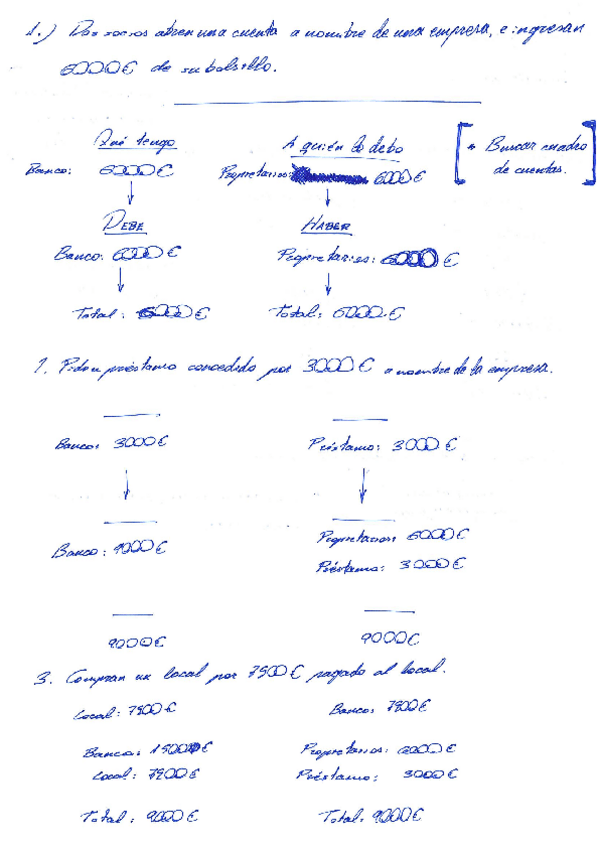 1.) Dos socios abren una cuenta a nombre de una empresa, e ingresan
6000€ de su bolsillo.
Qué tengo
A quién lo debo
* Buscar cuadro
de cuentas.
Banco: 6000€
Propietarios: 6000€
DEBE
HABER
Banco: 6000€
Propietarios: 6000€
Total: 6000€
Total: 6000€
préstamo concedido por 3000€ a nombre de la empresa.
Banco: 3000€
Préstamo: 3000€
Banco: 9000€
Propietarios: 6000€
Préstamo: 3000€
9000€
9000€
3. Compran un local por 7500€ pagado al local.
Local: 7500€
Banco: 7500€
Banco: 1500€
Propietarios: 6000€
Local: 7500€
Préstamo: 3000€
Total: 9000€
Total: 9000€